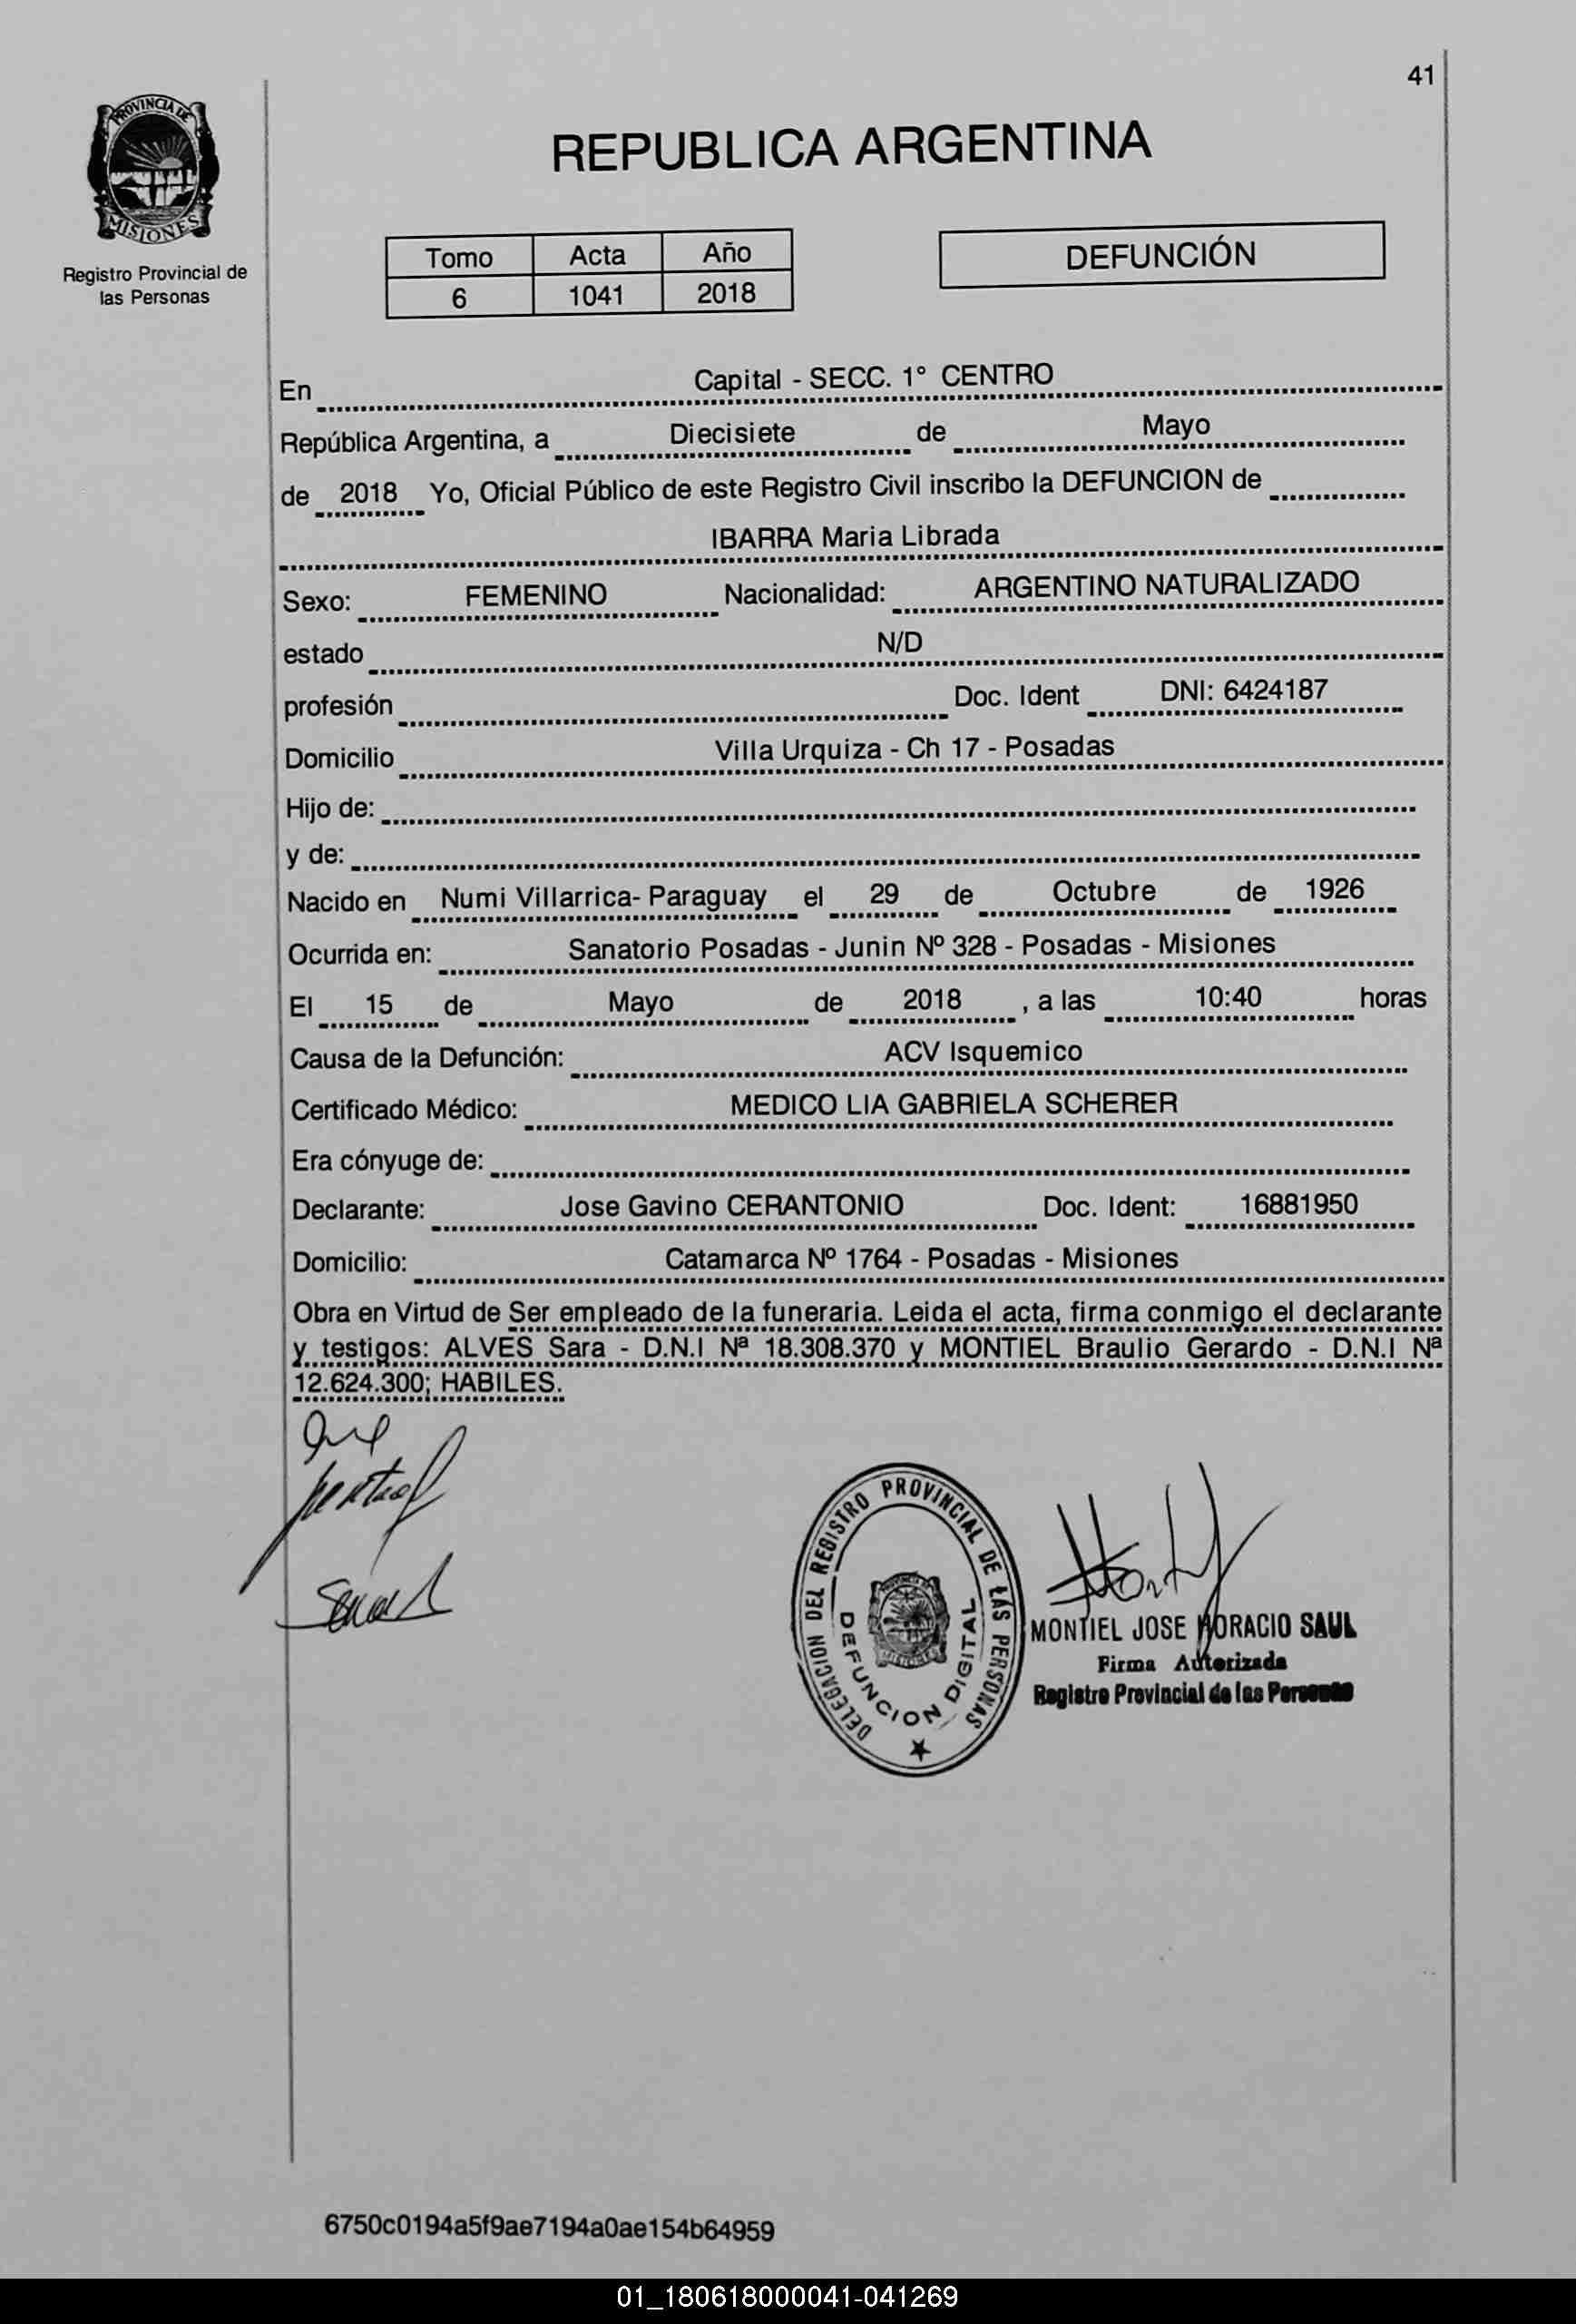 41
PROVINCIA DE
MISIONES
Registro Provincial de
las Personas
REPUBLICA ARGENTINA
Tomo Acta Año
6 1041 2018
DEFUNCIÓN
En Capital - SECC. 1° CENTRO
República Argentina, a Diecisiete de Mayo
de 2018 Yo, Oficial Público de este Registro Civil inscribo la DEFUNCION de
IBARRA Maria Librada
Sexo: FEMENINO Nacionalidad: ARGENTINO NATURALIZADO
estado N/D
profesión Doc. Ident DNI: 6424187
Domicilio Villa Urquiza - Ch 17 - Posadas
Hijo de:
y de:
Nacido en Numi Villarrica- Paraguay el 29 de Octubre de 1926
Ocurrida en: Sanatorio Posadas - Junin Nº 328 - Posadas - Misiones
El 15 de Mayo de 2018 , a las 10:40 horas
Causa de la Defunción: ACV Isquemico
Certificado Médico: MEDICO LIA GABRIELA SCHERER
Era cónyuge de:
Declarante: Jose Gavino CERANTONIO Doc. Ident: 16881950
Domicilio: Catamarca Nº 1764 - Posadas - Misiones
Obra en Virtud de Ser empleado de la funeraria. Leida el acta, firma conmigo el declarante
y testigos: ALVES Sara - D.N.I Nª 18.308.370 y MONTIEL Braulio Gerardo - D.N.I Nª
12.624.300; HABILES.
DELEGACION DEL REGISTRO PROVINCIAL DE LAS PERSONAS
DEFUNCION DIGITAL
MONTIEL JOSE HORACIO SAUL
Firma Autorizada
Registro Provincial de las Personas
6750c0194a5f9ae7194a0ae154b64959
01_180618000041-041269